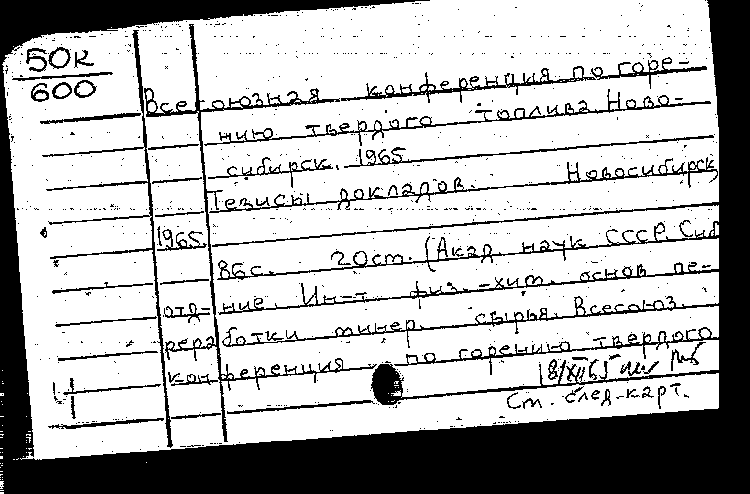 50к
600
Всесоюзная конференция по горе-
нию твердого топлива. Ново-
сибирск. 1965
Тезисы докладов. Новосибирск,
1965.
86 с. 20 см. (Акад. наук СССР. Сиб
отд-ние. Ин-т физ.-хим. основ пе-
реработки минер. сырья. Всесоюз.
конференция по горению твердого
18/XII 65
См. след. карт.